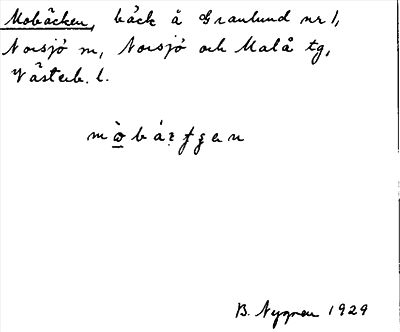 Mobäcken, bäck å Granlund nr 1,
Norsjö sn, Norsjö och Malå tg,
Västerb. l.
B. Nygren 1929